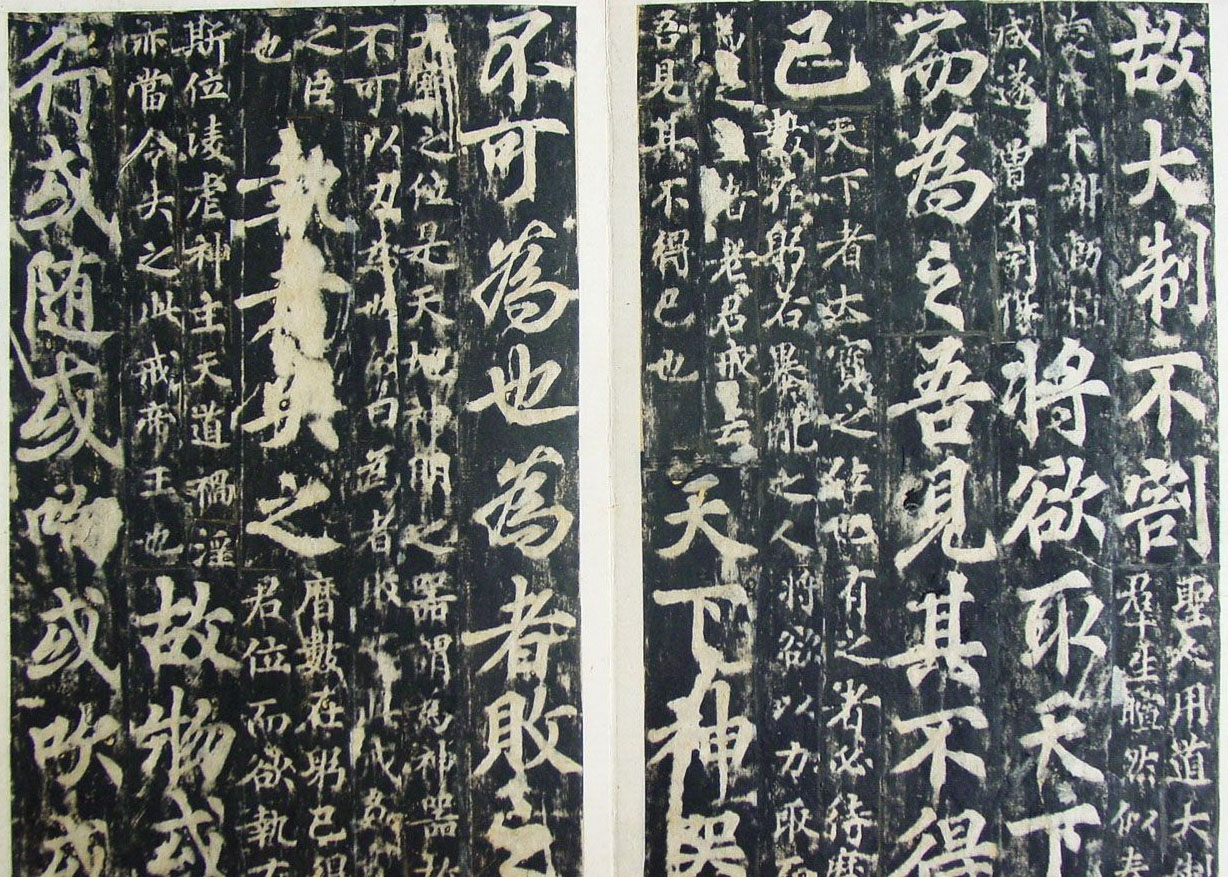 故大制不割
聖人用道大制
群生曖然似春
不謝動植
咸遂曾不割傷
將欲取天下
而為之吾見其不得
已
天下者大寶之位也有之者必待曆
數在躬若暴亂之人將欲以力取而
為之 老君戒云
吾見其不得已也
天下神器
不可為也為者敗之
大寶之位是天地神明之器謂為神器故
不可以力為也故曰為者敗 此戒姦
之臣
也
執者失之
曆數在躬已得
君位而欲執有
斯位凌虐神主天道禍淫
亦當令失之此戒帝王也
故物或
行或隨或呴或吹或